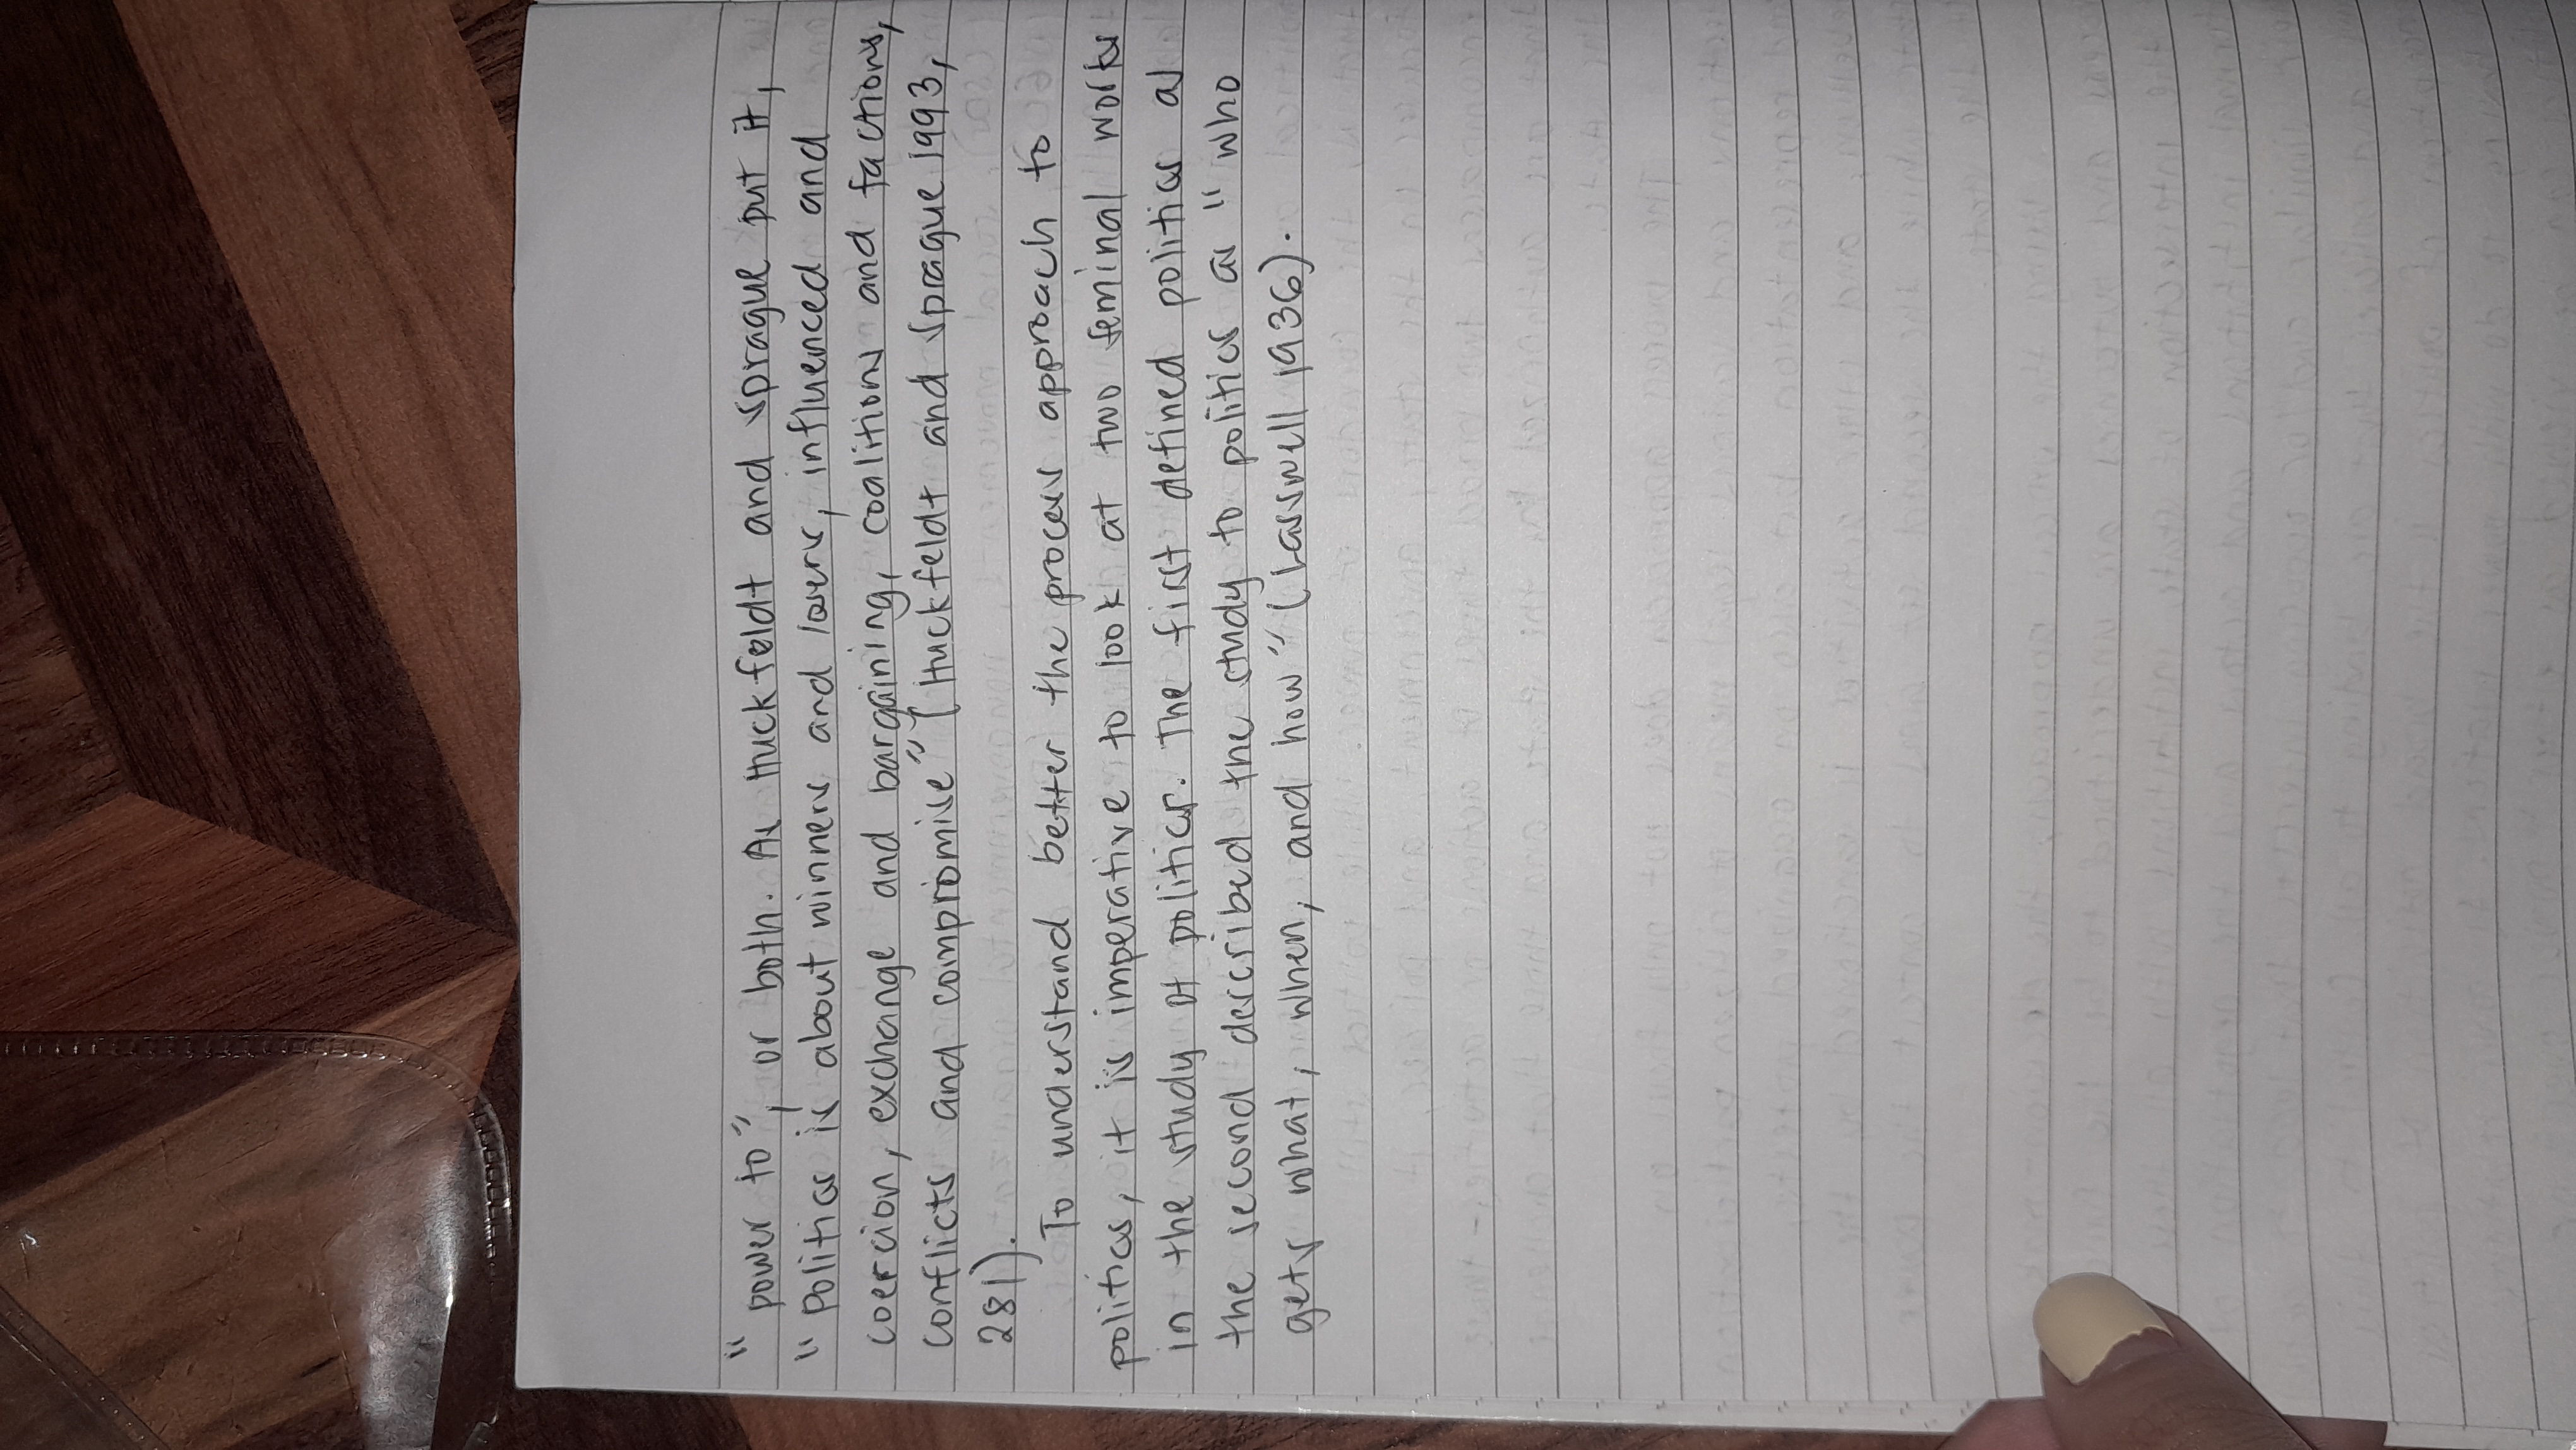 "power to", or both. As Huckfeldt and Sprague put it,
"politics is about winners and losers, influenced and
coercion, exchange and bargaining, coalitions and factions,
conflicts and compromise" (Huckfeldt and Sprague 1993,
281).
To understand better the process approach to
politics, it is imperative to look at two seminal works
in the study of politics. The first defined politics as
the second described the study to politics as "who
gets what, when, and how" (Lasswell 1936).